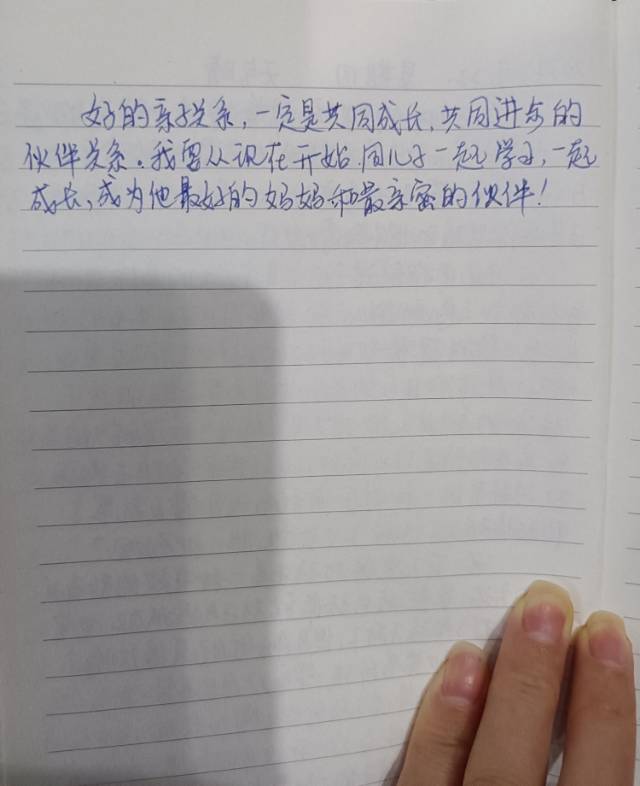 好的亲子关系，一定是共同成长，共同进步的
伙伴关系。我要从现在开始，同儿子一起学习，一起
成长，成为他最好的妈妈和最亲密的伙伴！